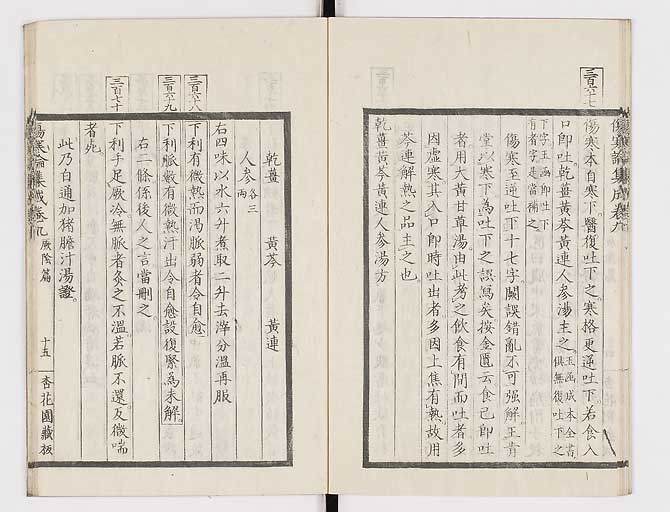 傷寒論集成卷九
三百六十七
傷寒本自寒下醫復吐下之寒格更逆吐下若食入
口即吐乾薑黃芩黃連人參湯主之玉函成本全書俱無復吐下之
下字玉函即吐下
有者字是當補之
傷寒至逆吐下十七字闕誤錯亂不可強解王肯
堂以寒下為吐下之誤寫矣按金匱云食已即吐
者用大黃甘草湯由此考之飲食有間而吐者多
因虛寒其入口即時吐出者多因上焦有熱故用
芩連解熱之品主之也
乾薑黃芩黃連人參湯方
乾薑 黃芩 黃連
人參各三兩
右四味以水六升煮取二升去滓分溫再服
三百六十八
下利有微熱而渴脈弱者令自愈
三百六十九
下利脈數有微熱汗出令自愈設復緊為未解
右二條係後人之言當刪之
三百七十
下利手足厥冷無脈者灸之不溫若脈不還反微喘
者死
此乃白通加豬膽汁湯證
傷寒論集成卷九 厥陰篇 十五 杏花園藏板